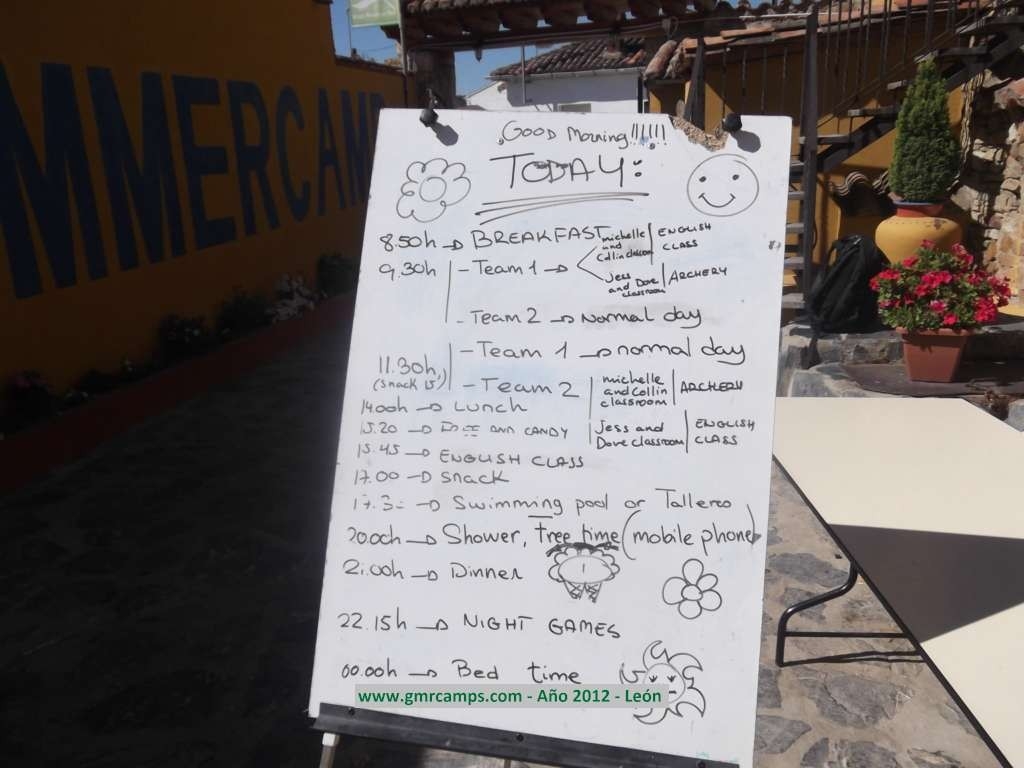 MMERCAMP
Good morning!!!!!!
TODAY:
8.50h → BREAKFAST
9.30h - Team 1 → michelle and Collin classroom | ENGLISH CLASS
Jess and Dave classroom | ARCHERY
- Team 2 → Normal day
11.30h, (snack 15') - Team 1 → normal day
- Team 2 | michelle and Collin classroom | ARCHERY
Jess and Dave classroom | ENGLISH CLASS
14.00h → Lunch
15.20 → AND CANDY
15.45 → ENGLISH CLASS
17.00 → Snack
17.3 → Swimming pool or Talleres
20.00h → Shower, Free time (mobile phone)
21.00h → Dinner
22.15h → NIGHT GAMES
00.00h → Bed time
www.gmrcamps.com - Año 2012 - León